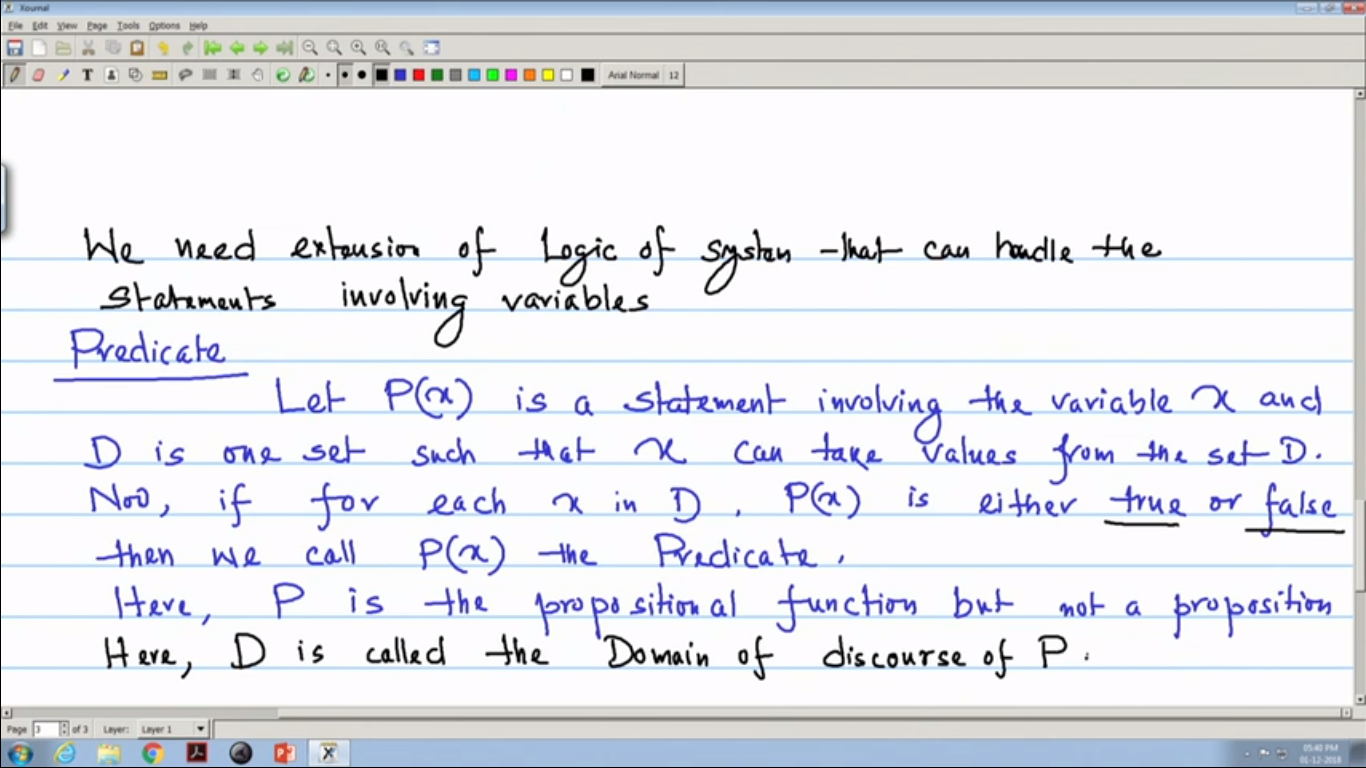 Xournal
File Edit View Page Tools Options Help
Arial Normal 12
We need extension of Logic of system that can handle the
statements involving variables
Predicate
Let P(x) is a statement involving the variable x and
D is one set such that x can take values from the set D.
Now, if for each x in D, P(x) is either true or false
then we call P(x) the Predicate.
Here, P is the propositional function but not a proposition
Here, D is called the Domain of discourse of P.
Page 3 of 3 Layer: Layer 1
05:40 PM
01-12-2018